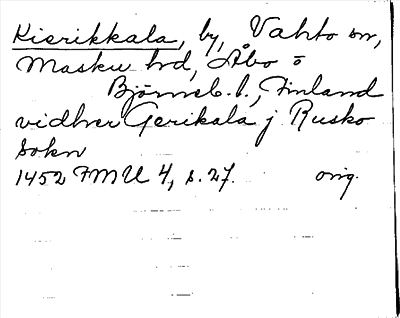 Kierikkala, by, Vahto sn,
Masku hd, Åbo o
Björneb. l., Finland
vidhver Gerikala j Rusko
sokn
1452 FMU 4, s. 27. orig.